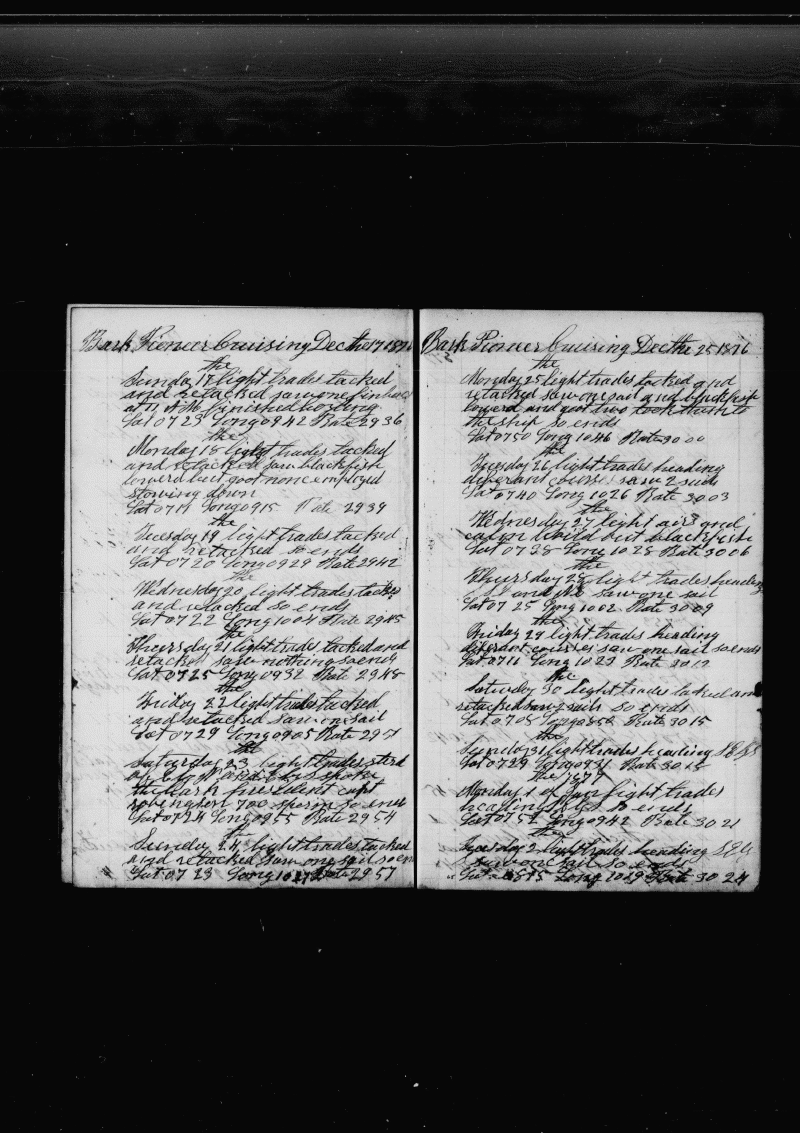 Bark Pioneer Cruising Dec the 17 1876
the
Sunday 17 light trades tacked
and retacked saw one finback
at 11 AM finished boiling
Lat 07 23 Long 09 42 Rate 29 36
the
Monday 18 light trades tacked
and retacked saw blackfish
lowerd but goot none employed
stowing down
Lat 07 11 Long 09 15 Rate 29 39
the
Tuesday 19 light trades tacked
and retacked so ends
Lat 07 20 Long 09 29 Rate 29 42
the
Wednesday 20 light trades tacked
and retacked so ends
Lat 07 22 Long 10 04 Rate 29 45
the
Thursday 21 light trades tacked and
retacked saw nothing so ends
Lat 07 25 Long 09 32 Rate 29 48
the
Friday 22 light trades tacked
and retacked saw one sail
Lat 07 29 Long 09 05 Rate 29 51
the
Saturday 23 light trades sterd
spoke
the bark president capt
700 sperm so ends
Lat 07 24 Long 09 55 Rate 29 54
the
Sunday 24 light trades tacked
and retacked saw one sail so ends
Lat 07 23 Long 10 Rate 29 57
Bark Pioneer Cruising Dec the 25 1876
the
Monday 25 light trades tacked and
retacked saw one sail and blackfish
lowerd and goot two took them to
the ship so ends
Lat 07 50 Long 10 46 Rate 30 00
the
Tuesday 26 light trades heading
diferant courses saw 2 sails
Lat 07 40 Long 10 26 Rate 30 03
the
Wednesday 27 light airs and
calm blackfish
Lat 07 38 Long 10 28 Rate 30 06
the
Thursday 28 light trades heading
saw one sail
Lat 07 25 Long 10 02 Rate 30 09
the
Friday 29 light trades heading
diferant courses saw one sail so ends
Lat 07 11 Long 10 23 Rate 30 12
the
Saturday 30 light trades tacked and
retacked saw 2 sails so ends
Lat 07 08 Long Rate 30 15
the
Sunday 31 light trades heading
Lat 07 29 Long 09 31 Rate 30 18
the 1877
Monday 1 of Jan light trades
heading so ends
Lat 07 52 Long 09 42 Rate 30 21
the
Tuesday 2 light trades heading
saw one sail so ends
Lat Long 10 19 Rate 30 24